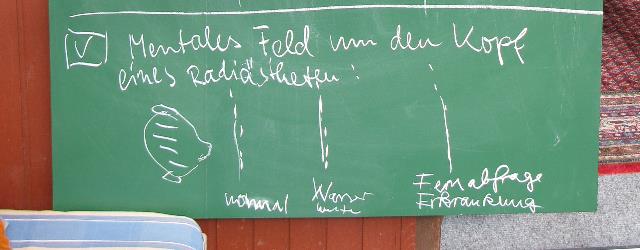 Mentales Feld um den Kopf
eines Radiästheten:
normal
Wasser
Fernabfrage
Erkrankung